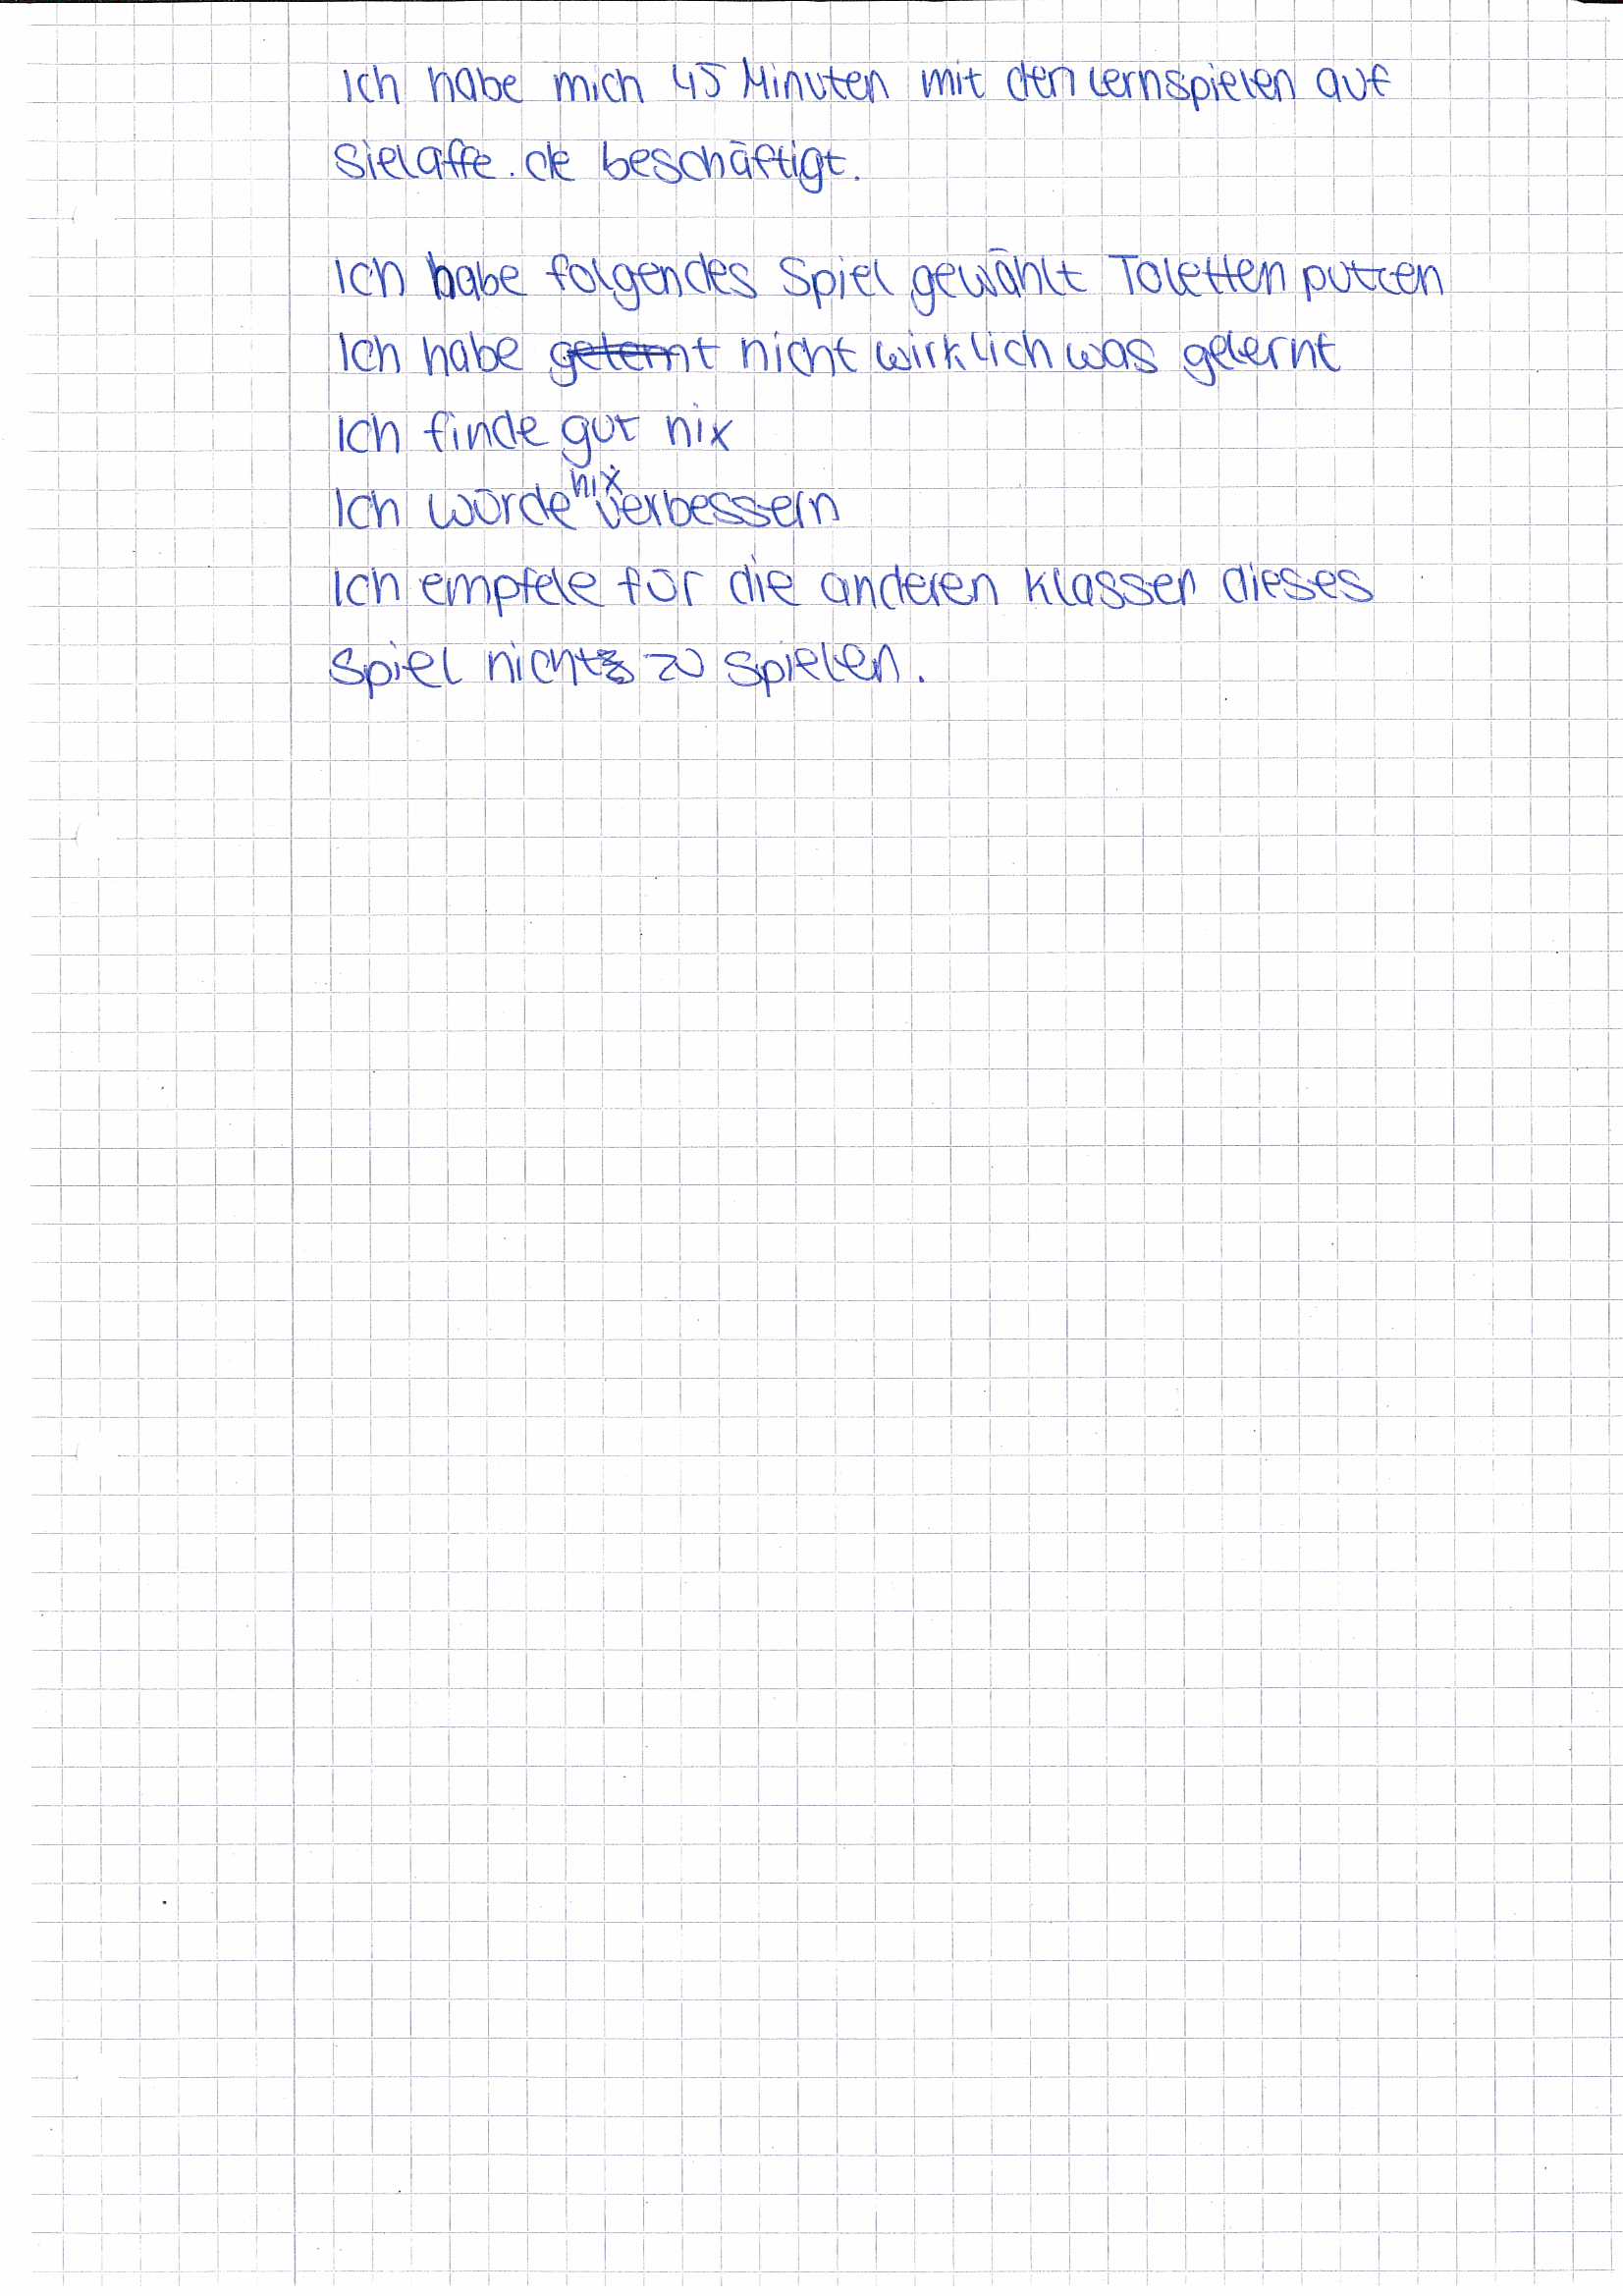 Ich habe mich 45 Minuten mit den Lernspielen auf
Sielaffe.de beschäftigt.
Ich habe folgendes Spiel gewählt Toletten putzen
Ich habe gelernt nicht wirklich was gelernt
Ich finde gut nix
Ich würde nix verbessern
Ich empfele für die anderen Klassen dieses
Spiel nicht zu spielen.